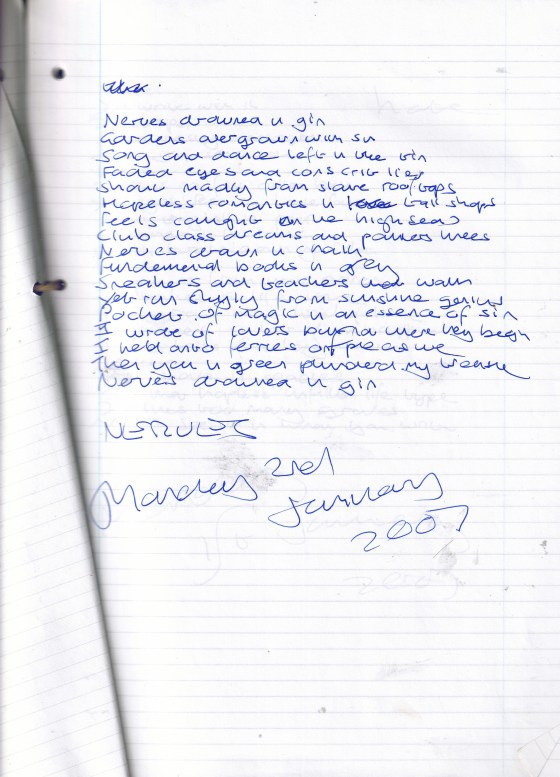 Nerves drowned in gin
Gardens overgrown with sin
Song and dance left in the bin
Faded eyes and conscript lies
Shout madly from slave rooftops
Hopeless romantics in shops
Feels caught on the high seas
Club class dreams and knees
Nerves drawn in chalk
Fundemental books in grey
Sneakers and teachers walk
Yet run from sunshine genius
Pocket of magic in an essence of sin
I wrote of lovers beyond where they begin
I held onto ferries of pleasure
Then you in green plundered my treasure
Nerves drowned in gin
NERVES
2nd
January
2007